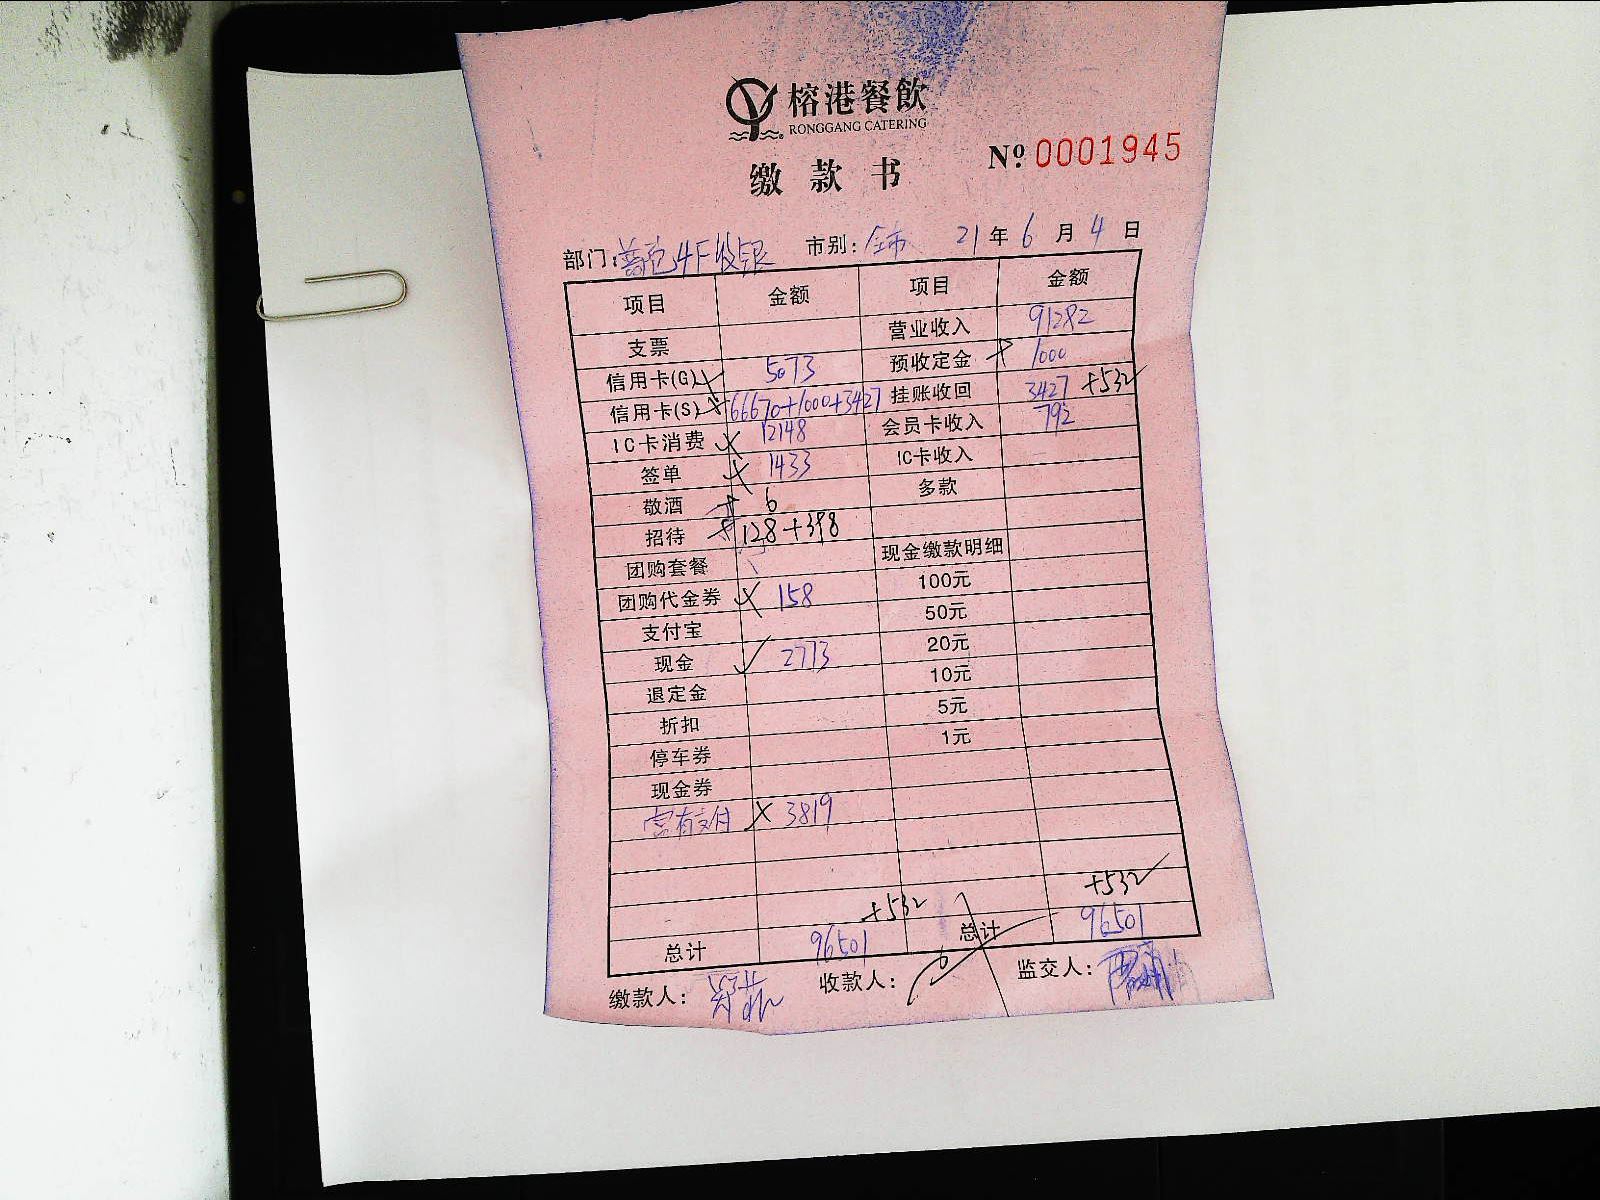 榕港餐飲
RONGGANG CATERING
缴款书
Nº 0001945
部门: 4F收银 市别: 全市 21年6月4日
项目 金额 项目 金额
支票 营业收入 91282
信用卡(G) 5073 预收定金 1000
信用卡(S) 66670+1000+3427 挂账收回 3427 +532
IC卡消费 12148 会员卡收入 792
签单 1433 IC卡收入
敬酒 6 多款
招待 128+398
团购套餐 现金缴款明细
团购代金券 158 100元
支付宝 50元
现金 2773 20元
退定金 10元
折扣 5元
停车券 1元
现金券
3819
+532 +532
总计 96501 总计 96501
缴款人: 收款人: 监交人: